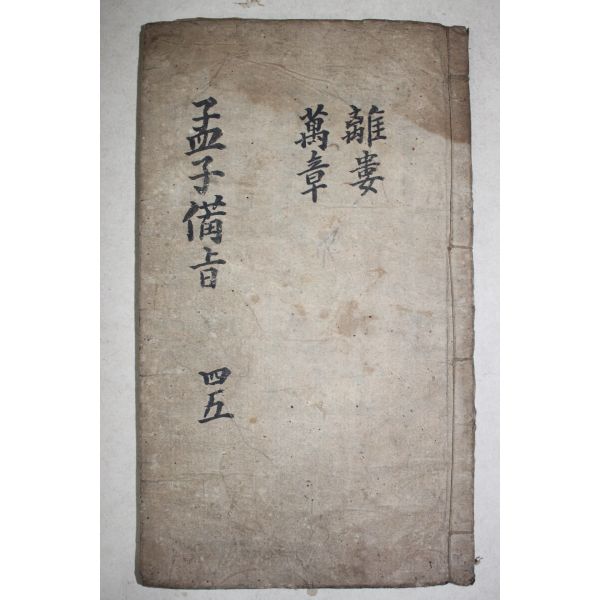 離婁
萬章
孟子備旨
四五